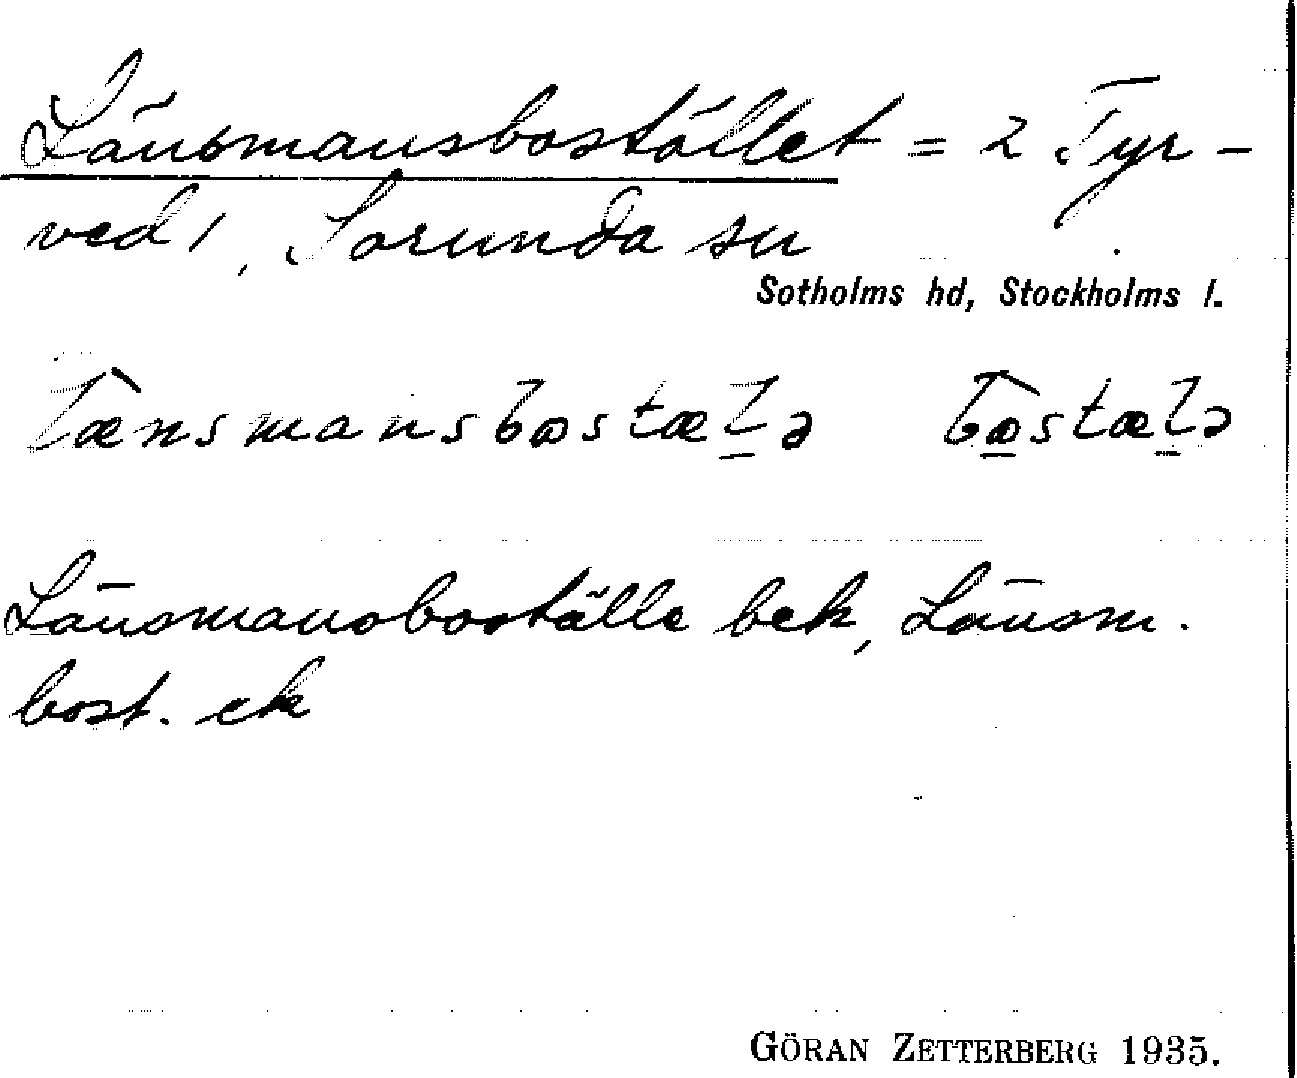 Länsmansbostället = 2 Tyr-
ved 1, Sorunda sn
Sotholms hd, Stockholms l.
læ̀nsmansbωstæl̲ə bὼ̲stæl̲ə
Länsmansboställe bek, Länsm.
bost. ek
GÖRAN ZETTERBERG 1935.